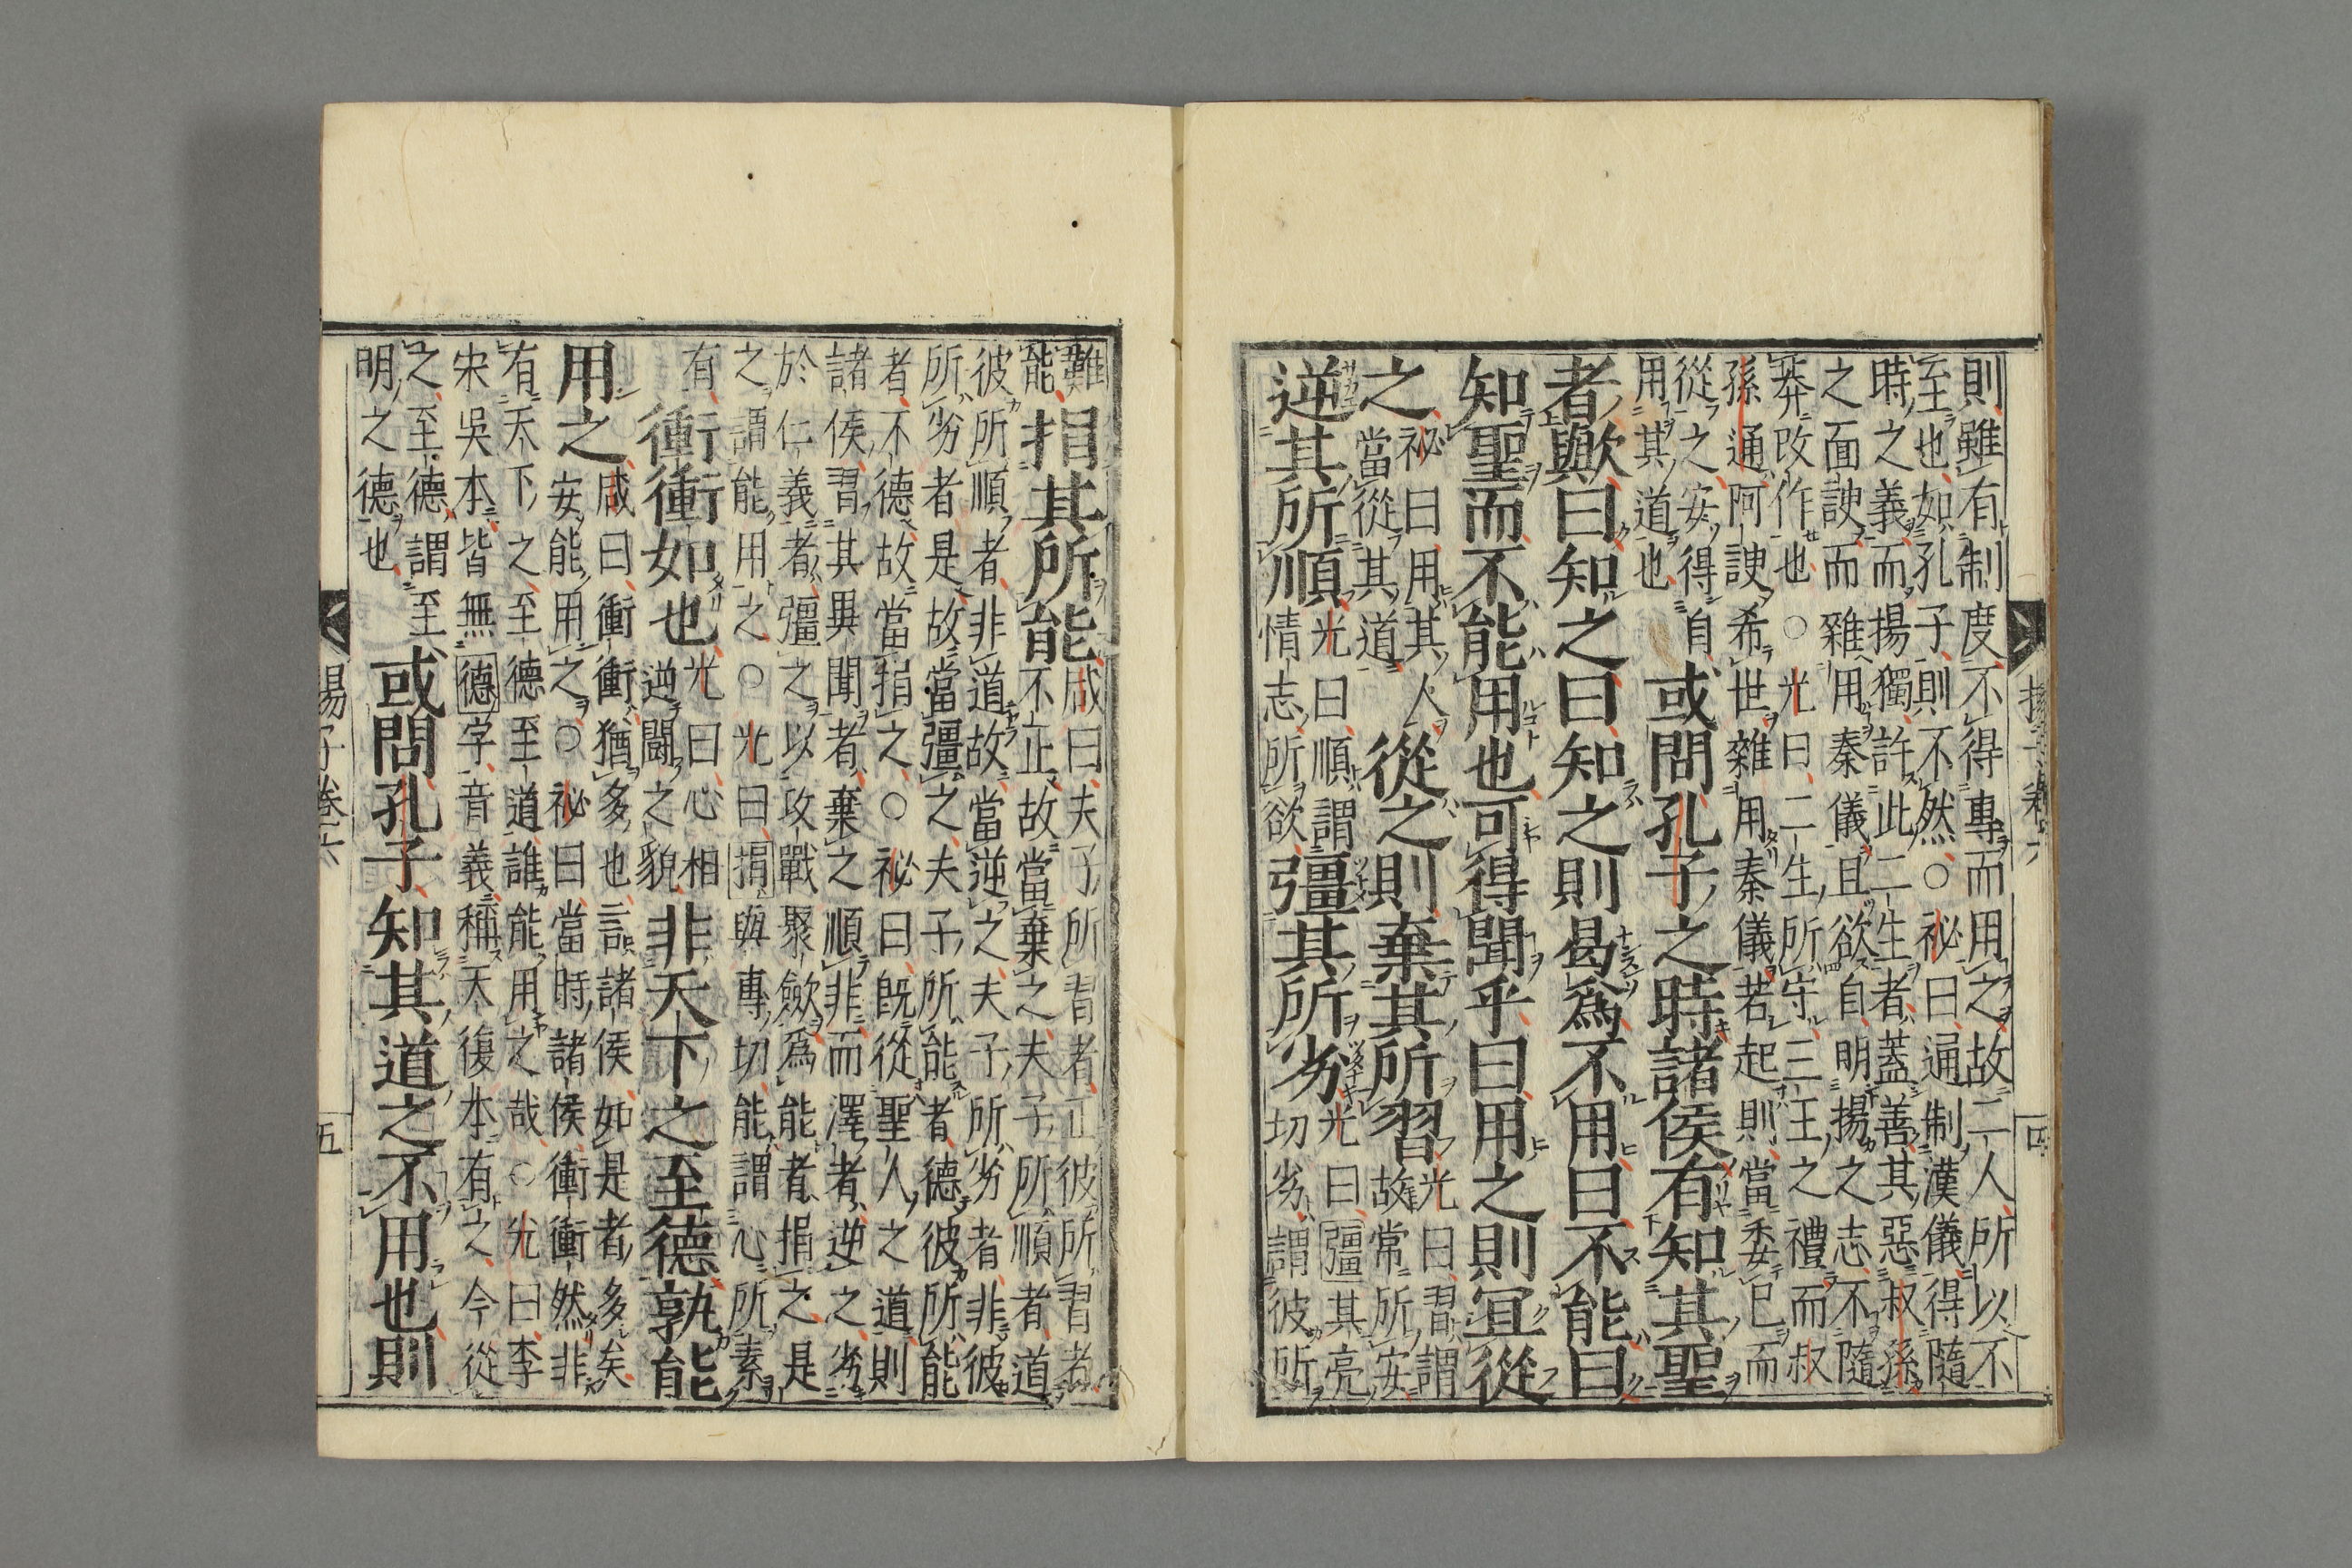 則雖有制度不得專而用之故二人所以不
至也如孔子則不然○祕曰通制漢儀得隨
時之義而揚獨許此二生者蓋善其惡叔孫
之面諛而雜用秦儀且欲自明揚之志不隨
莽改作也○光曰二生所守三王之禮而叔
孫通阿諛希世雜用秦儀若起則當委已而
從之安得自
用其道也
或問孔子之時諸侯有知其聖
者歟曰知之曰知之則曷爲不用曰不能曰
知聖而不能用也可得聞乎曰用之則宜從
之
祕曰用其人
當從其道
從之則棄其所習
光曰習謂
故常所安
逆其所順
光曰順謂
情志所欲
彊其所劣
光曰彊其亮
切劣謂彼所
難
能
捐其所能
咸曰夫子所習者正彼所習者
不正故當棄之夫子所順者道
彼所順者非道故當逆之夫子所劣者非彼
所劣者是故當彊之夫子所能者德彼所能
者不德故當捐之○祕曰既從聖人之道則
諸侯習其異聞者棄之順非而澤者逆之劣
於仁義者彊之以攻戰聚斂爲能者捐之是
之謂能用之○光曰捐與專切能謂心所素
有
衝衝如也
光曰心相
逆鬪之貌
非天下之至德孰能
用之
咸曰衝衝猶多也言諸侯如是者多矣
安能用之○祕曰當時諸侯衝衝然非
有天下之至德至道誰能用之哉○光曰李
宋吳本皆無德字音義稱天復本有之今從
之至德謂至
明之德也
或問孔子知其道之不用也則
揚子卷六
四
揚子卷六
五